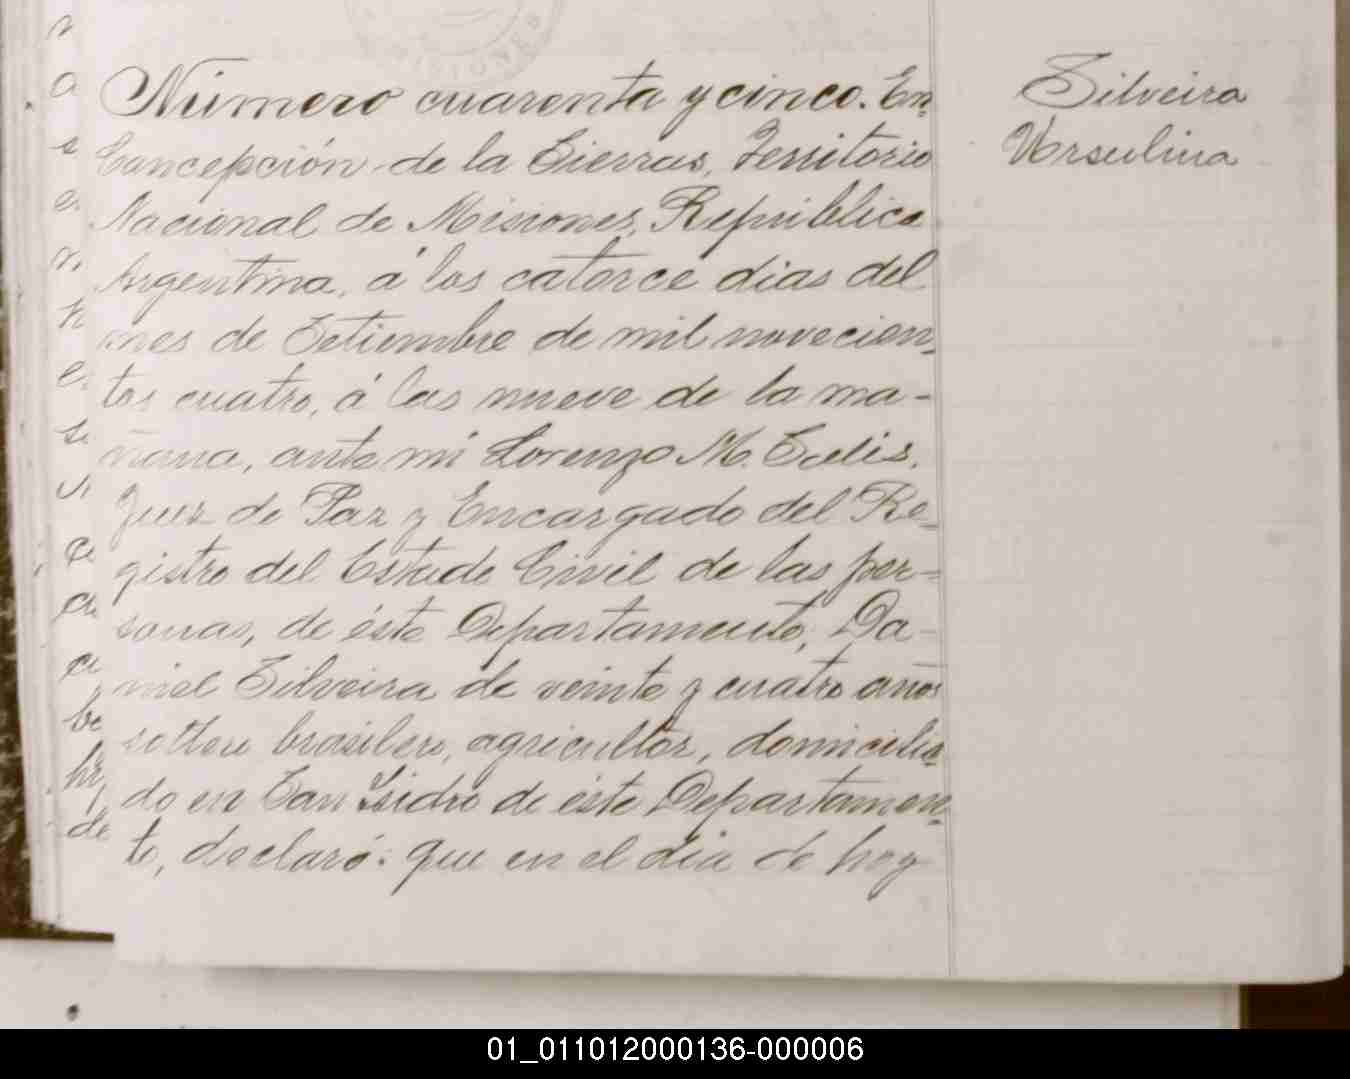 MISIONES
Número cuarenta y cinco. En
Concepción de la Sierra, Territorio
Nacional de Misiones, República
Argentina, á los catorce dias del
mes de Setiembre de mil novecien-
tos cuatro, á las nueve de la ma-
ñana, ante mi Lorenzo M.
Juez de Paz y Encargado del Re-
gistro del Estado Civil de las per-
sonas, de éste Departamento, Da-
niel Silveira de veinte y cuatro años
soltero brasilero, agricultor, domicilia-
do en San Isidro de éste Departamen-
to, declaró: que en el dia de hoy
Silveira
Ursulina
01_011012000136-000006